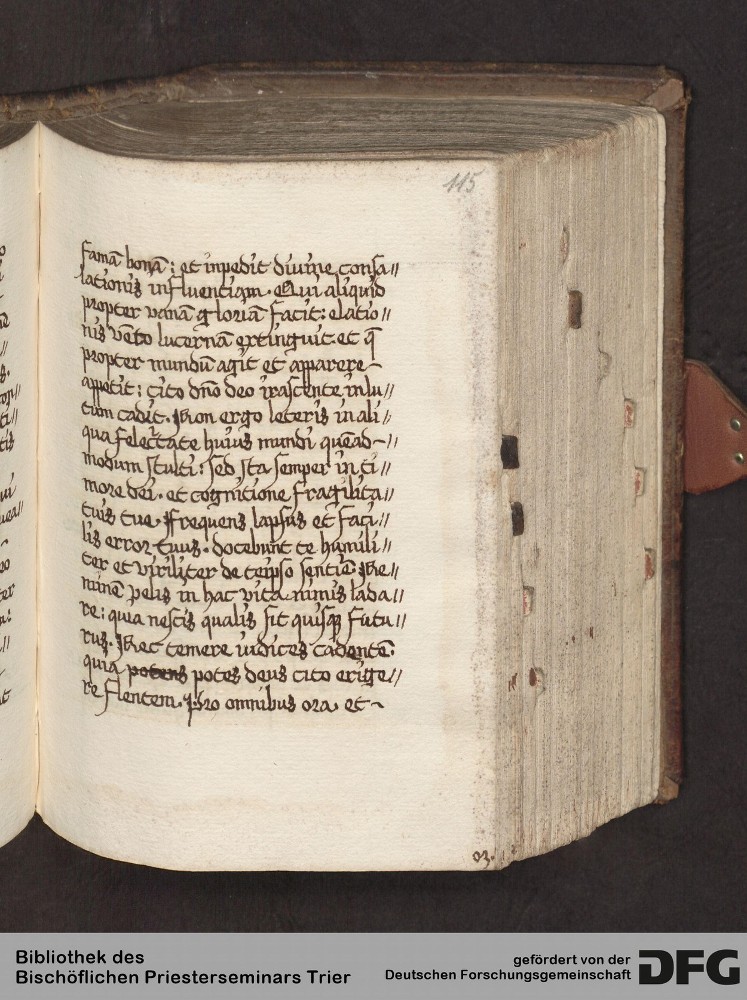 115
famā bonā : et inpedit diuine consa//
lationis influentiam. Qui aliquid
propter vanā gloriā facit: elatio//
nis vēto lucernā extinguit. et q̄
propter mundū agit et apparere
appetit : cito dn̄o deo irascente in lu//
tum cadit. Non ergo leteris in ali//
qua felectate huius mundi quead//
modum stulti : sed sta semper in ti//
more dei . et cognitione fragilita//
tuis tue. Frequens lapsus et faci//
lis error tuus . docebunt te humili//
ter et viriliter de teipso sentire Ne//
minē velis in hac vita nimis lada//
re : quia nescis qualis sit quisq̄ futu//
rus. Nec temere iudices cadentē :
quia potens potes deus cito erige//
re flentem. Pro omnibus ora. et
o3.
Bibliothek des
Bischöflichen Priesterseminars Trier
gefördert von der
Deutschen Forschungsgemeinschaft
DFG